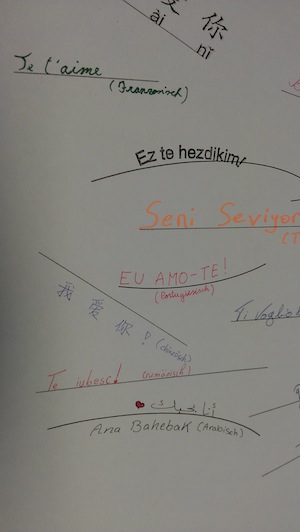 爱 你
ài nǐ
Je t'aime
(Französisch)
Ez te hezdikim!
Seni Seviyor
(T
EU AMO-TE!
(Portugiesisch)
我 爱 你 ? (chinesisch)
Ti Voglio
Te iubesc! (rumänisch)
أنا بحبك
Ana Bahebak (Arabisch)